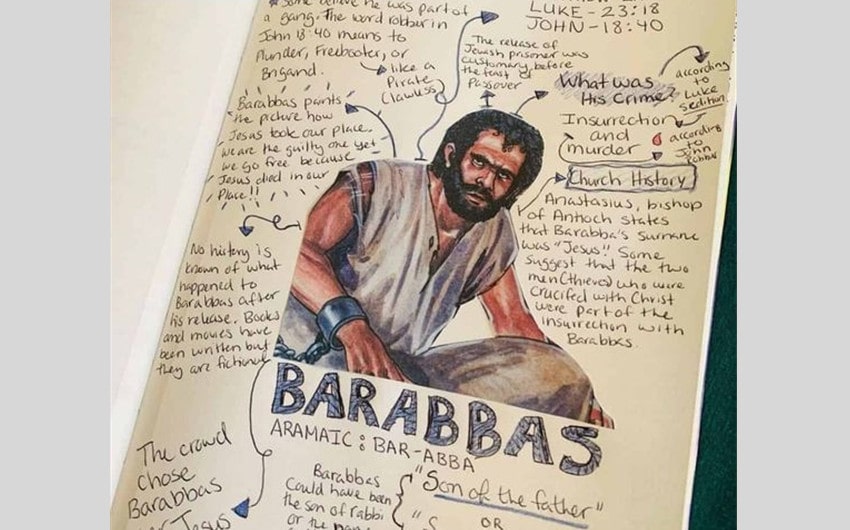 Some believe he was part of
a gang. The word robber in
John 18:40 means to
Plunder, Freebooter, or
Brigand.
like a
Pirate
Clawless
LUKE - 23:18
JOHN - 18:40
The release of
Jewish prisoner was
customary before
the feast of
Passover
What was
His Crime?
according
to
Luke
sedition
Insurrection
and
murder
according
to
John
robber
Barabbas paints
the picture how
Jesus took our place.
We are the guilty one yet
we go free because
Jesus died in our
Place!!
Church History
Anastasius, bishop
of Antioch states
that Barabba's surname
was "Jesus". Some
suggest that the two
men (thieves) who were
crucifed with Christ
were part of the
insurrection with
Barabbas.
No history is
known of what
happened to
Barabbas after
his release. Books
and movies have
been written but
they are fictional
BARABBAS
ARAMAIC: BAR-ABBA
The crowd
chose
Barabbas
Jesus
Barabbas
Could have been
the son of rabbi
or the
"Son of the father"
OR